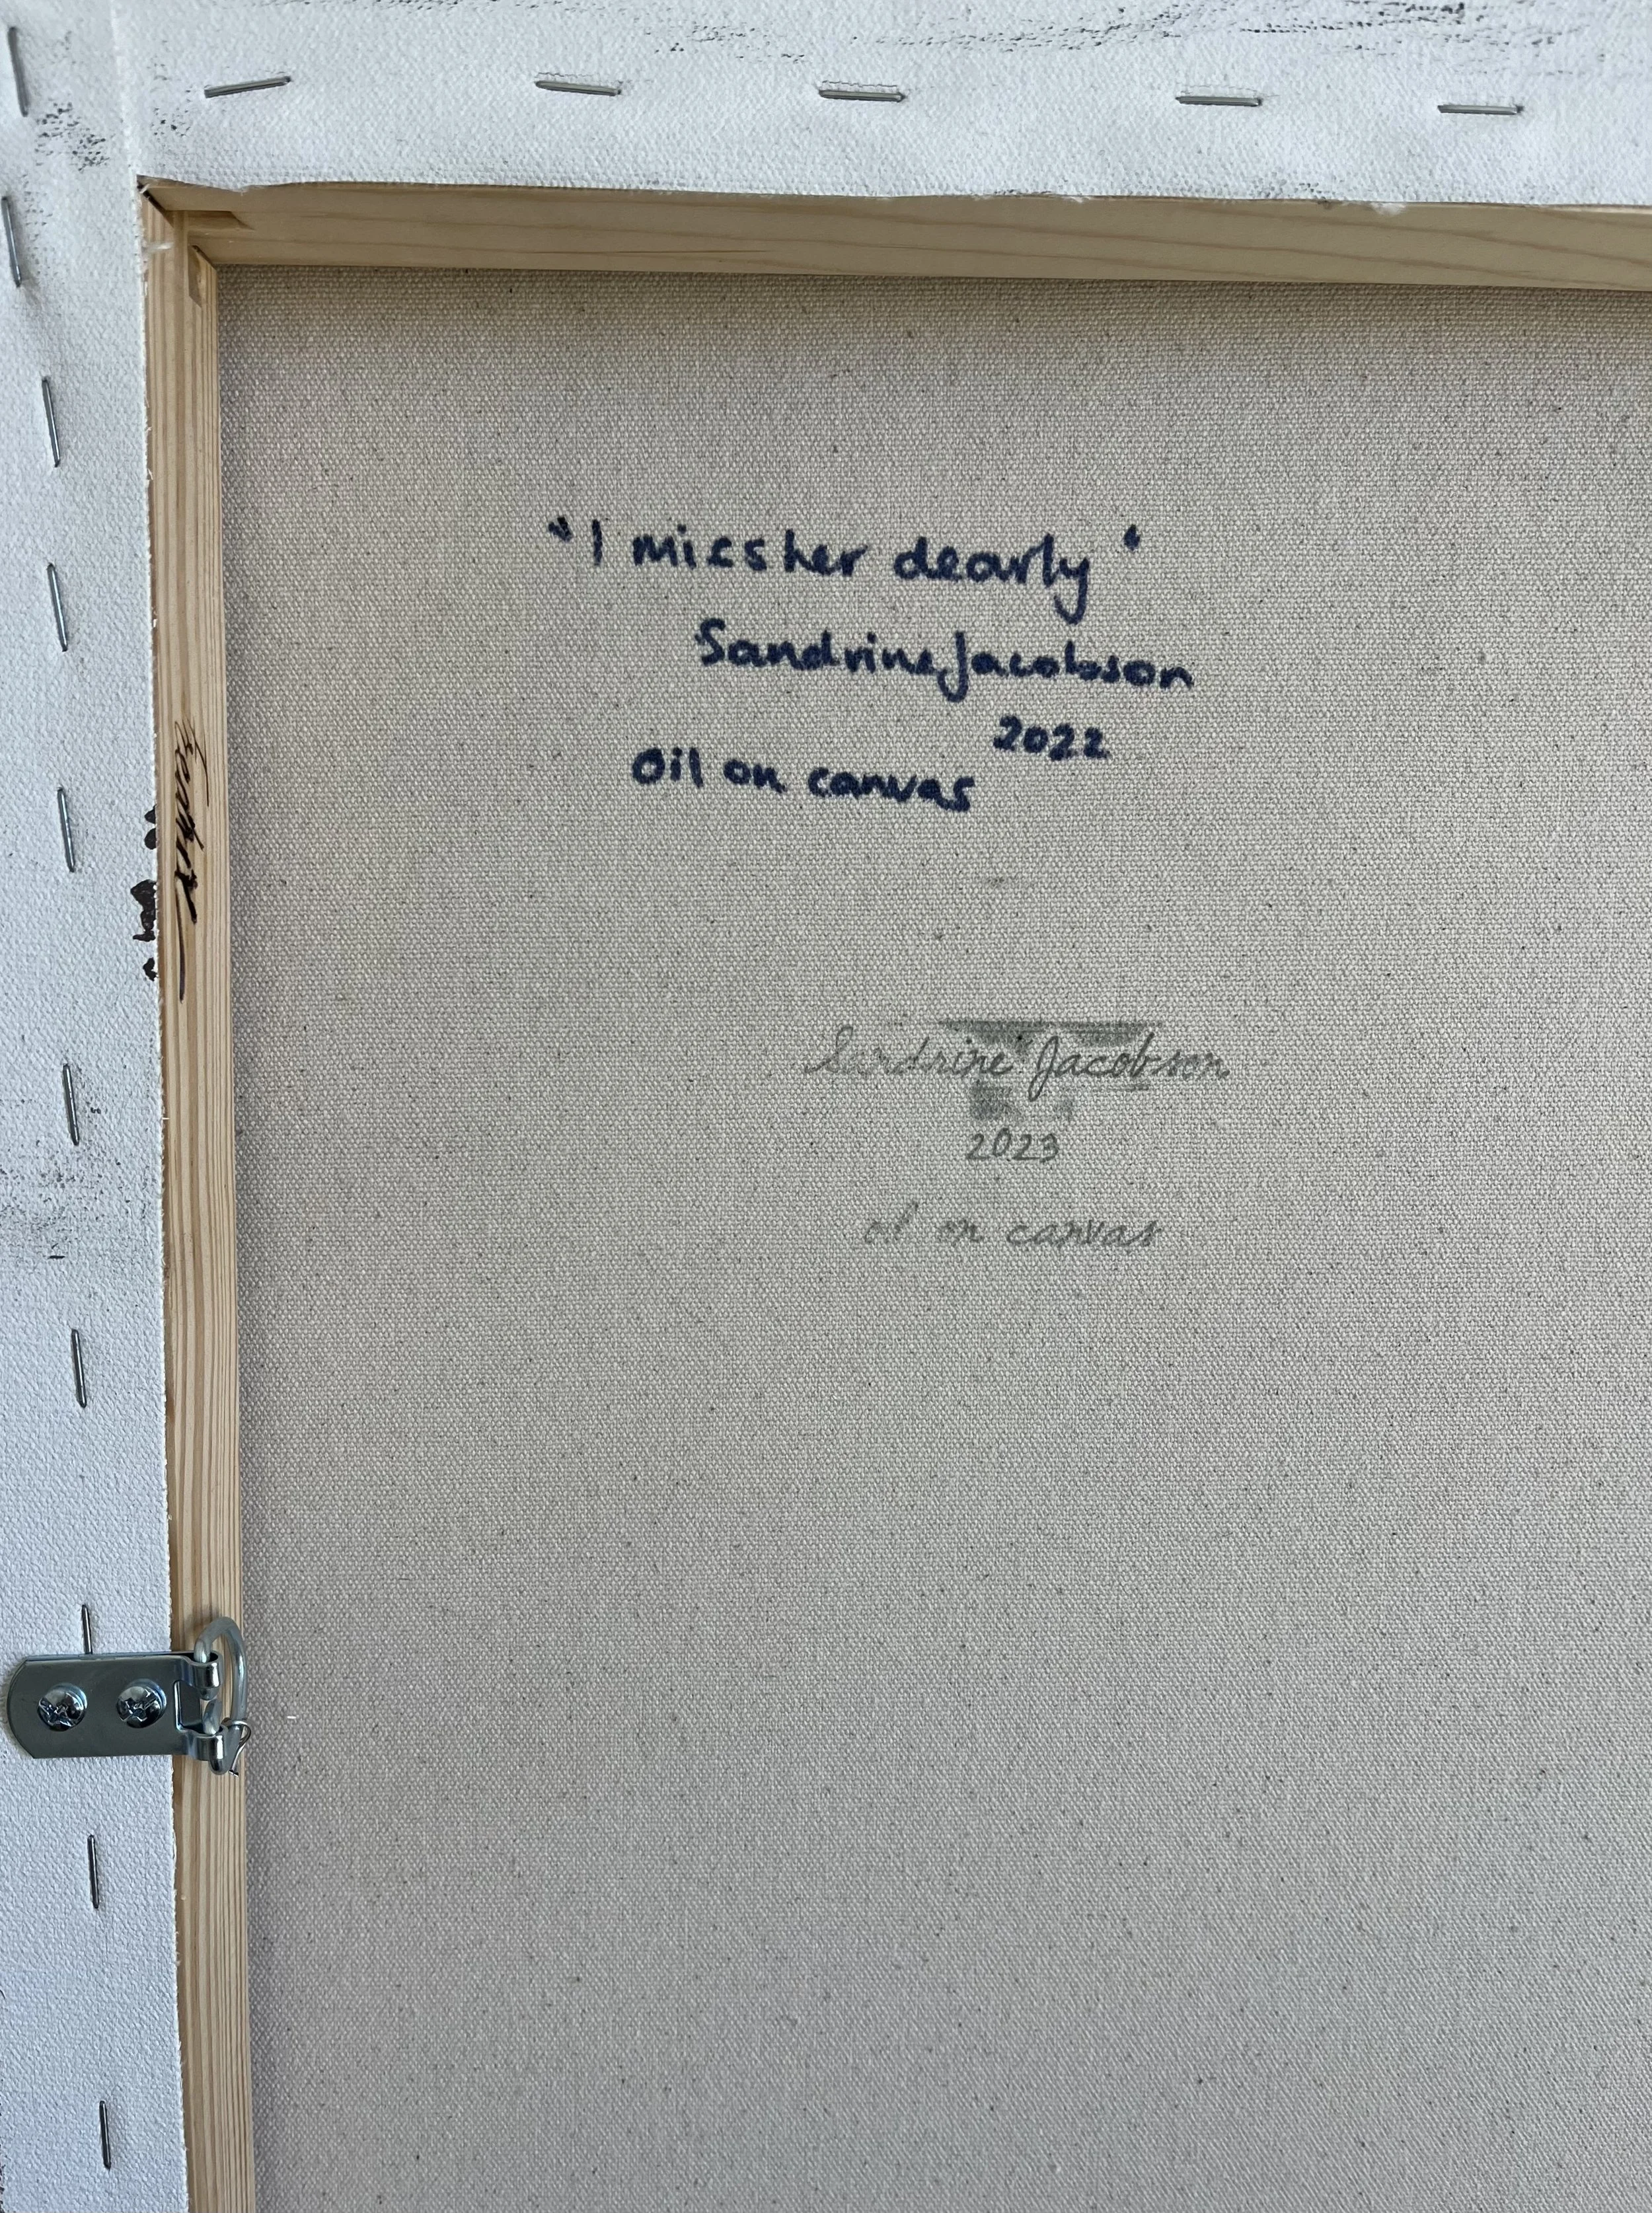 "I miss her dearly"
Sandrine Jacobson
2022
Oil on canvas
Sandrine Jacobson
2023
oil on canvas